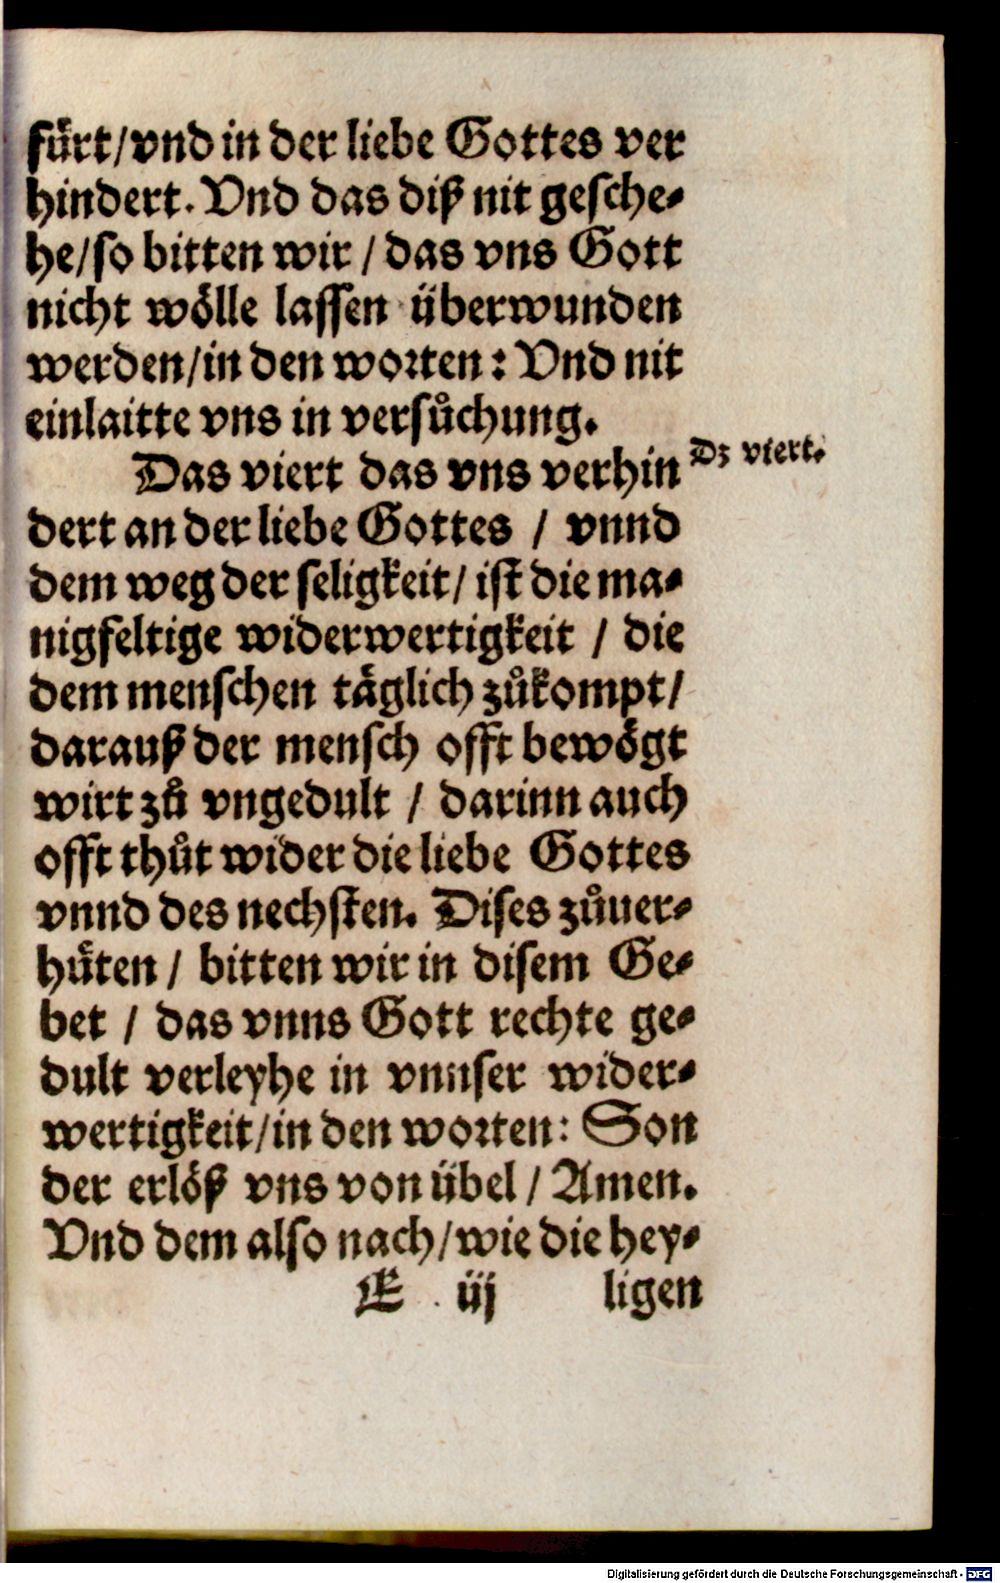 fuͤrt/vnd in der liebe Gottes ver
hindert. Vnd das diß nit gesche-
he/so bitten wir / das vns Gott
nicht woͤlle lassen überwunden
werden/in den worten: Vnd nit
einlaitte vns in versuͦchung.
Das viert das vns verhin
Dz viert.
dert an der liebe Gottes / vnnd
dem weg der seligkeit/ ist die ma-
nigfeltige widerwertigkeit / die
dem menschen taͤglich zuͦkompt/
darauß der mensch offt bewoͤgt
wirt zuͦ vngedult / darinn auch
offt thuͦt wider die liebe Gottes
vnnd des nechsten. Dises zuͦuer-
huͤten / bitten wir in disem Ge-
bet / das vnns Gott rechte ge-
dult verleyhe in vnnser wider-
wertigkeit/in den worten: Son
der erloͤß vns von übel / Amen.
Vnd dem also nach/wie die hey-
E iij ligen
Digitalisierung gefördert durch die Deutsche Forschungsgemeinschaft - DFG